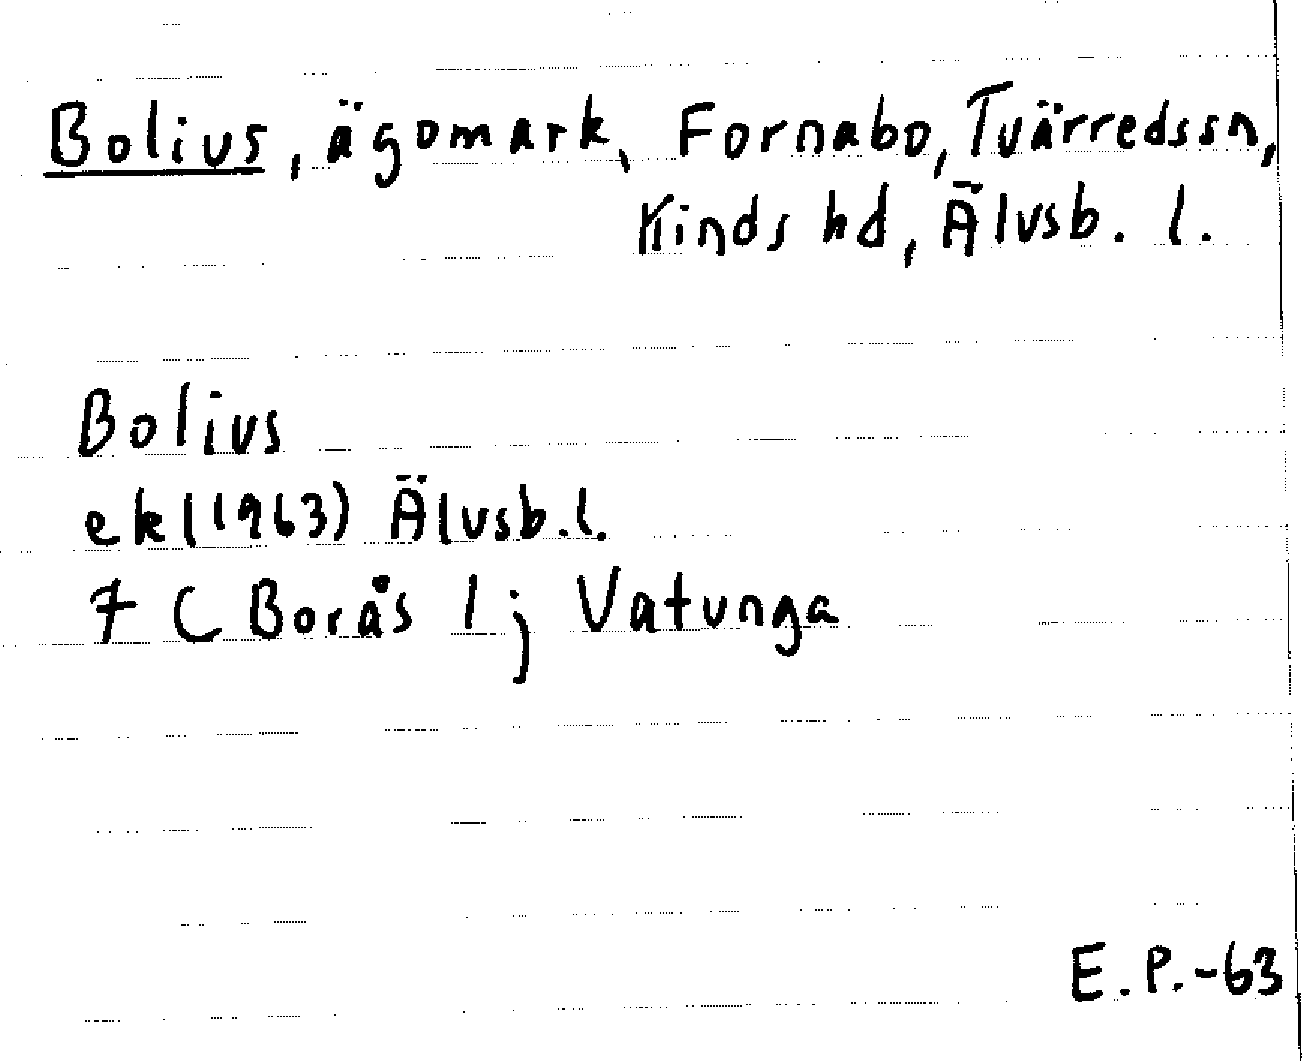 Bolius, ägomark, Fornabo, Tvärredssn,
Kinds hd, Älvsb. l.
Bolius
ekl (1963) Älvsb. l.
7 C Borås l; Vatunga
E. P. -63